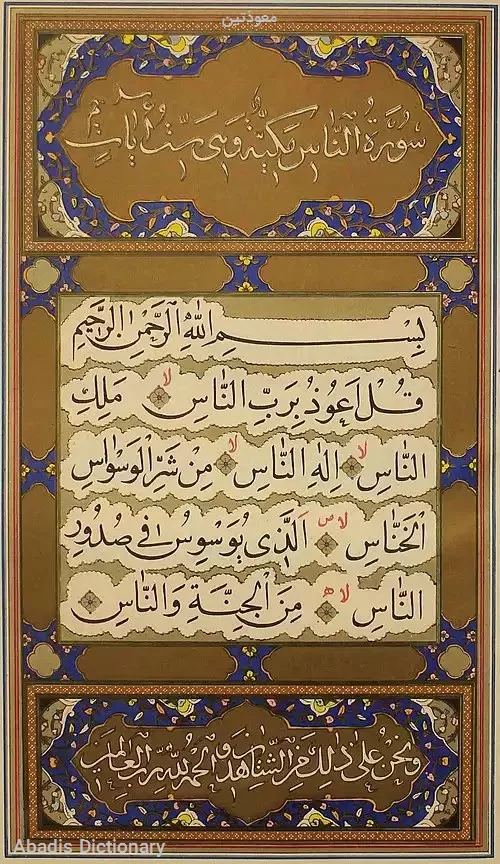 معوذتین
سُورَةُ النَّاسِ مَكِّيَّةٌ وَهِيَ سِتُّ اٰيَاتٍ
بِسْمِ اللّٰهِ الرَّحْمٰنِ الرَّحِيمِ
قُلْ اَعُوذُ بِرَبِّ النَّاسِ لا مَلِكِ
النَّاسِ لا اِلٰهِ النَّاسِ لا مِنْ شَرِّ الْوَسْوَاسِ
الْخَنَّاسِ لاص اَلَّذِي يُوَسْوِسُ فِي صُدُورِ
النَّاسِ لاه مِنَ الْجِنَّةِ وَالنَّاسِ
وَنَحْنُ عَلٰى ذٰلِكَ مِنَ الشَّاهِدِينَ وَالْحَمْدُ لِلّٰهِ رَبِّ الْعَالَمِينَ
Abadis Dictionary